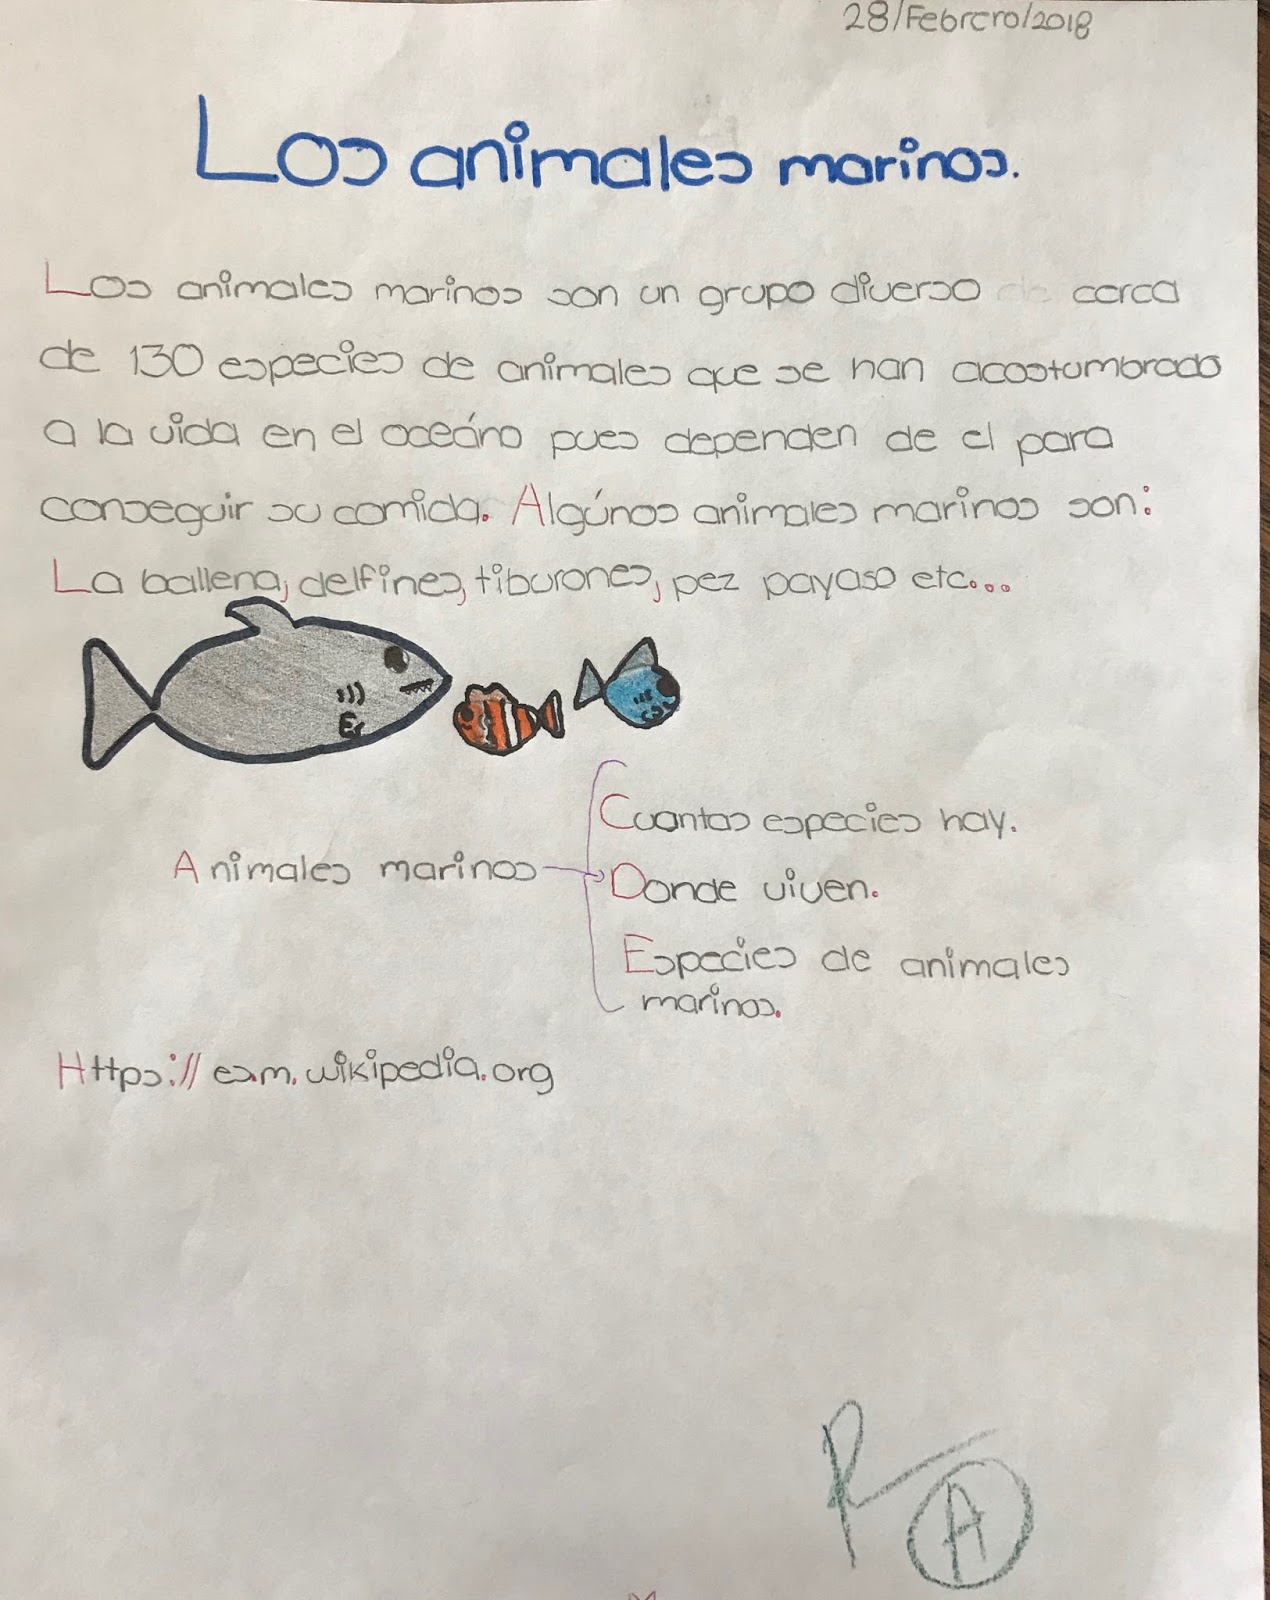 28/Febrero/2018
Los animales marinos.
Los animales marinos son un grupo diverso de cerca
de 130 especies de animales que se han acostumbrado
a la vida en el oceáno pues dependen de el para
conseguir su comida. Algúnos animales marinos son:
La ballena, delfines, tiburones, pez payaso etc...
Animales marinos
Cuantas especies hay.
Donde viven.
Especies de animales
marinos.
Https://es.m.wikipedia.org
A